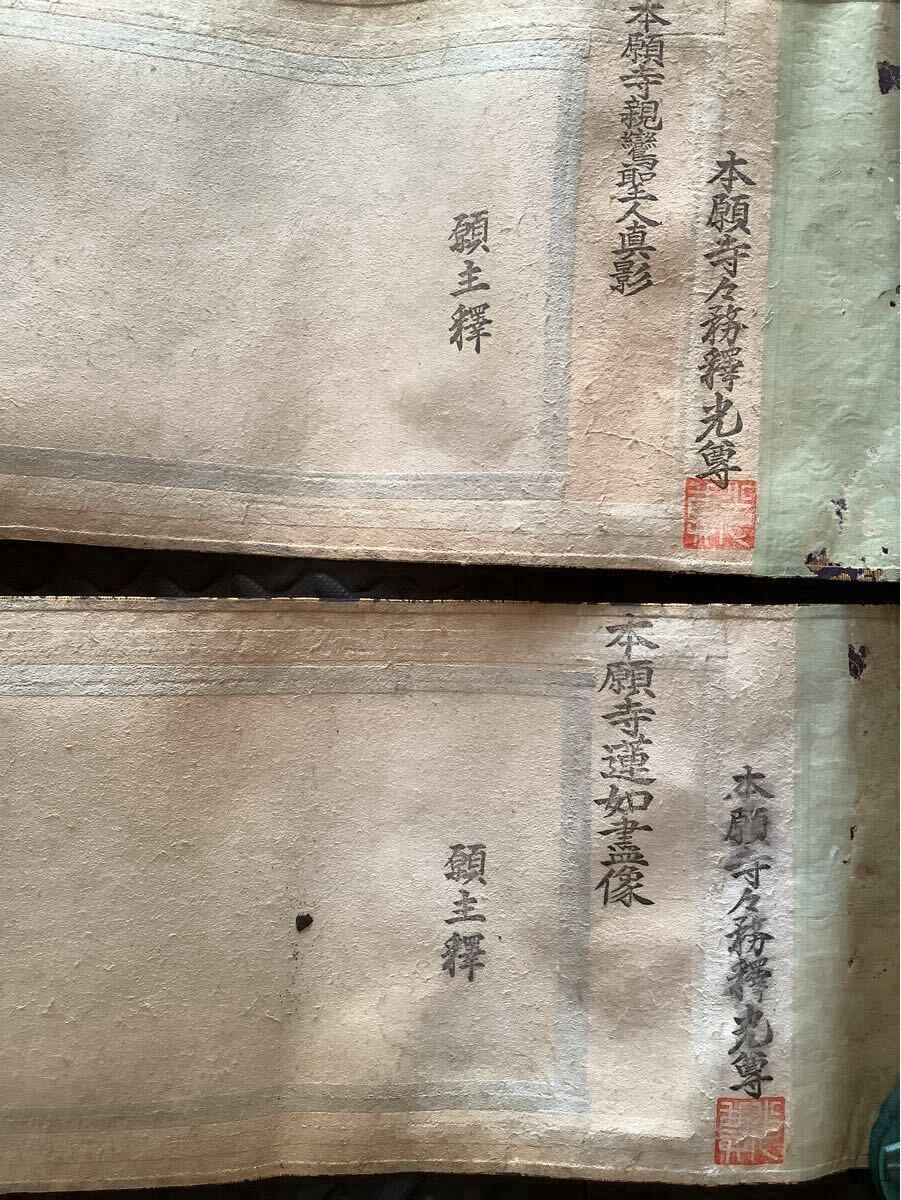 本願寺々務釋光尊
本願寺親鸞聖人真影
願主釋
本願寺々務釋光尊
本願寺蓮如畫像
願主釋